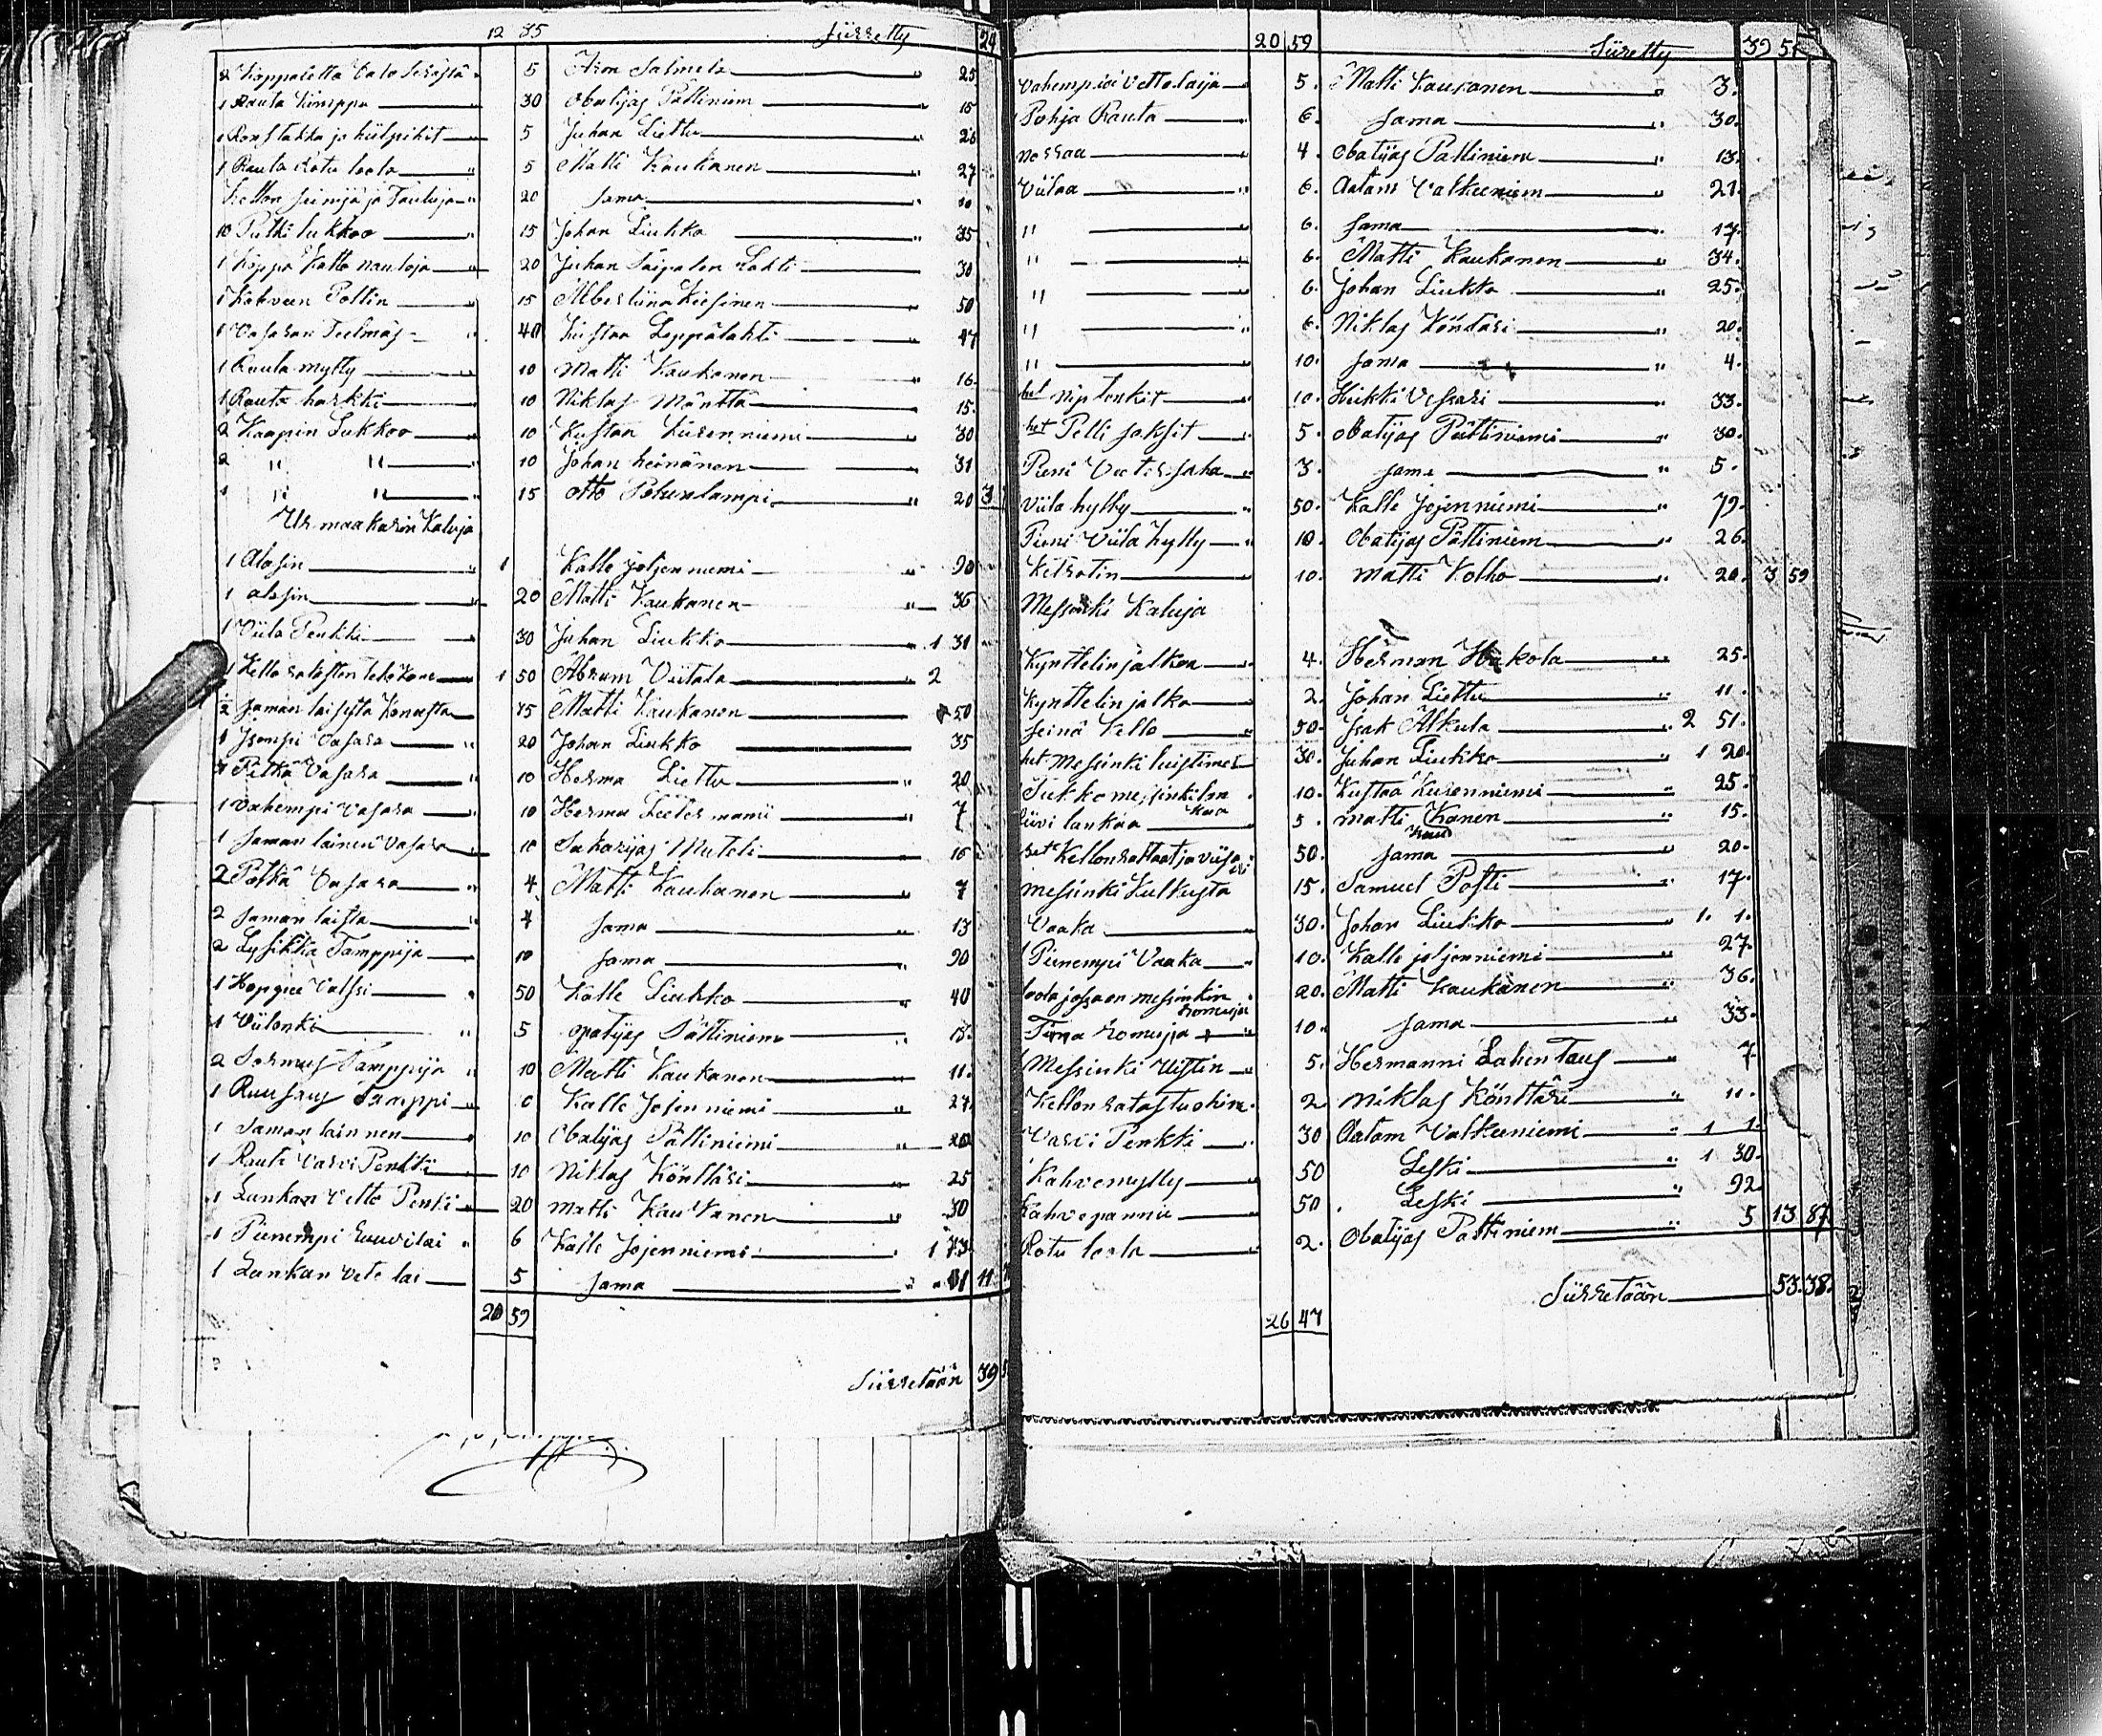 12 35 Siirretty 24
2 Kappaletta Vala 5 Aron Salmela " 25
1 Rauta Kimppu " 30 Obatijas Pättiniem " 15
1 5 Juhan Liettu " 26
1 Rauta Rotu loola " 5 Matti Kaukanen " 27
Kellon seinijä ja Tauluja " 20 Sama " 10
10 Putki lukkoo " 15 Johan Liukko " 35
1 Koppa Katto nauloja " 20 Juhan Saipalen Lahti " 30
1 Kahveen Poltin " 15 Albertiina Kiesinen " 50
1 Vasaran Teelmäs 40 Kustaa Leppälahti " 47
1 Rauta mytty " 10 Matti Kaukanen " 16
1 Rauta harkki " 10 Niklas Mänttä " 15
2 Kaapin Lukkoo " 10 Kustaa Kurenniemi " 30
2 " " " 10 Johan heinänen " 31
1 " " " 15 Otto Petunlampi " 20 3
Ur maakarin Kaluja
1 Alasin " 1 Kalle joljenniemi " 90
1 alasin " 20 Matti Kaukanen " 36
1 Viila Penkki " 30 Juhan Liukko " 1 31
1 Kello 1 50 Abram Viitala " 2
2 Saman laisesta Koneesta 75 Matti Kaukanen 50
1 Isompi Vasara " 20 Johan Liukko 35
1 Pitkä Vasara " 10 Herma Liettu " 20
1 Vähempi Vasara " 10 Herma " 7
1 Saman lainen Vasara 10 Sakarijas Mateli " 16
2 Pitkä Vasara " 4 Matti Kaukanen " 7
2 Saman laista " 7 Sama " 13
2 Lysikkä Tamppija " 10 Sama " 90
1 Hoppee Valssi " 50 Kalle Liukko " 40
1 Viilonki " 5 Opatijas Pättiniem " 15
2 Sormus Tamppija " 10 Matti Kaukanen " 11
1 Ruusuus Tamppi " 6 Kalle Jojenniemi " 27
1 Saman lainnen " 10 Obatijas Pättiniemi " 20
1 Rauta Varvi Penkki 10 Niklas Könttäri " 25
1 Lankan Veto Penki 20 Matti Kaukanen " 30
1 Pienempi Ruuvilai " 6 Kalle Jojenniemi " 1 73
1 Lankan Veto lai 5 Sama " 11
20 59
Siirretään 39
20 59 Siiretty 39 51
Vähempiä Vetto laija " 5 Matti Kaukanen " 3
Pohja Rauta " 6 Sama " 30
" 4 Obatijas Pattiniem " 13
Viilaa " 6 Aatam Valkeeniem " 21
" " 6 Sama " 17
" " 6 Matti Kaukanen " 34
" " 6 Johan Liukko " 25
" " 6 Niklas Könttäri " 20
" 10 Sama " 4
het 10 Heikki Vessari " 33
het Pelli saksit " 5 Obatijas Pättiniemi " 30
Pieni Veeter saha " 3 Sama " 5
Viila hylly " 50 Kalle Jojenniemi " 79
Pieni Viila hylly " 10 Obatijas Pättiniem " 26
Kitratin " 10 Matti Kolho " 20 3 59
Messinki Kaluja
Kynttelin jalkoa " 4 Herman Hakola " 25
Kynttelin jalka " 2 Johan Liettu " 11
Seinä Kello " 50 Isak Alkula " 2 51
het Messinki luistimet 30 Juhan Liukko " 1 20
Tukko messinkilankaa 10 Kustaa Kurenniemi " 25
lankaa " 5 Matti Kaukanen " 15
het Kellon rattaat ja 50 Sama " 20
messinki Kulkusta 15 Samuel Posti " 17
Vaaka " 30 Johan Liukko " 1 1
1 Pienempi Vaaka " 10 Kalle joljenniemi " 27
loola jossa on messinkin romuja 20 Matti Kaukanen " 36
Tina romuja " 10 Sama " 33
Messinki Uistin " 5 Hermanni Lahentaus " 7
Kellon 2 Niklas Könttäri " 11
Varvi Penkki " 30 Aatam Valkeeniemi " 1 1
Kahvemylly " 50 Leski " 1 30
Kahvepannu " 50 Leski " 92
Rotu loola " 2 Obatijas Pattiniem " 5 13 87
Siirretään 53 38
26 47